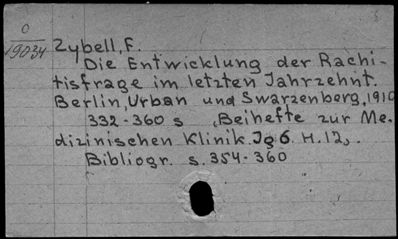 0
19034
Zybell, F.
Die Entwicklung der Rachi-
tisfrage im letzten Jahrzehnt.
Berlin, Urban und Swarzenberg, 1910
332-360 s ,Beihefte zur Me-
dizinischen Klinik. Jg 6. H. 12,.
Bibliogr. s. 354-360